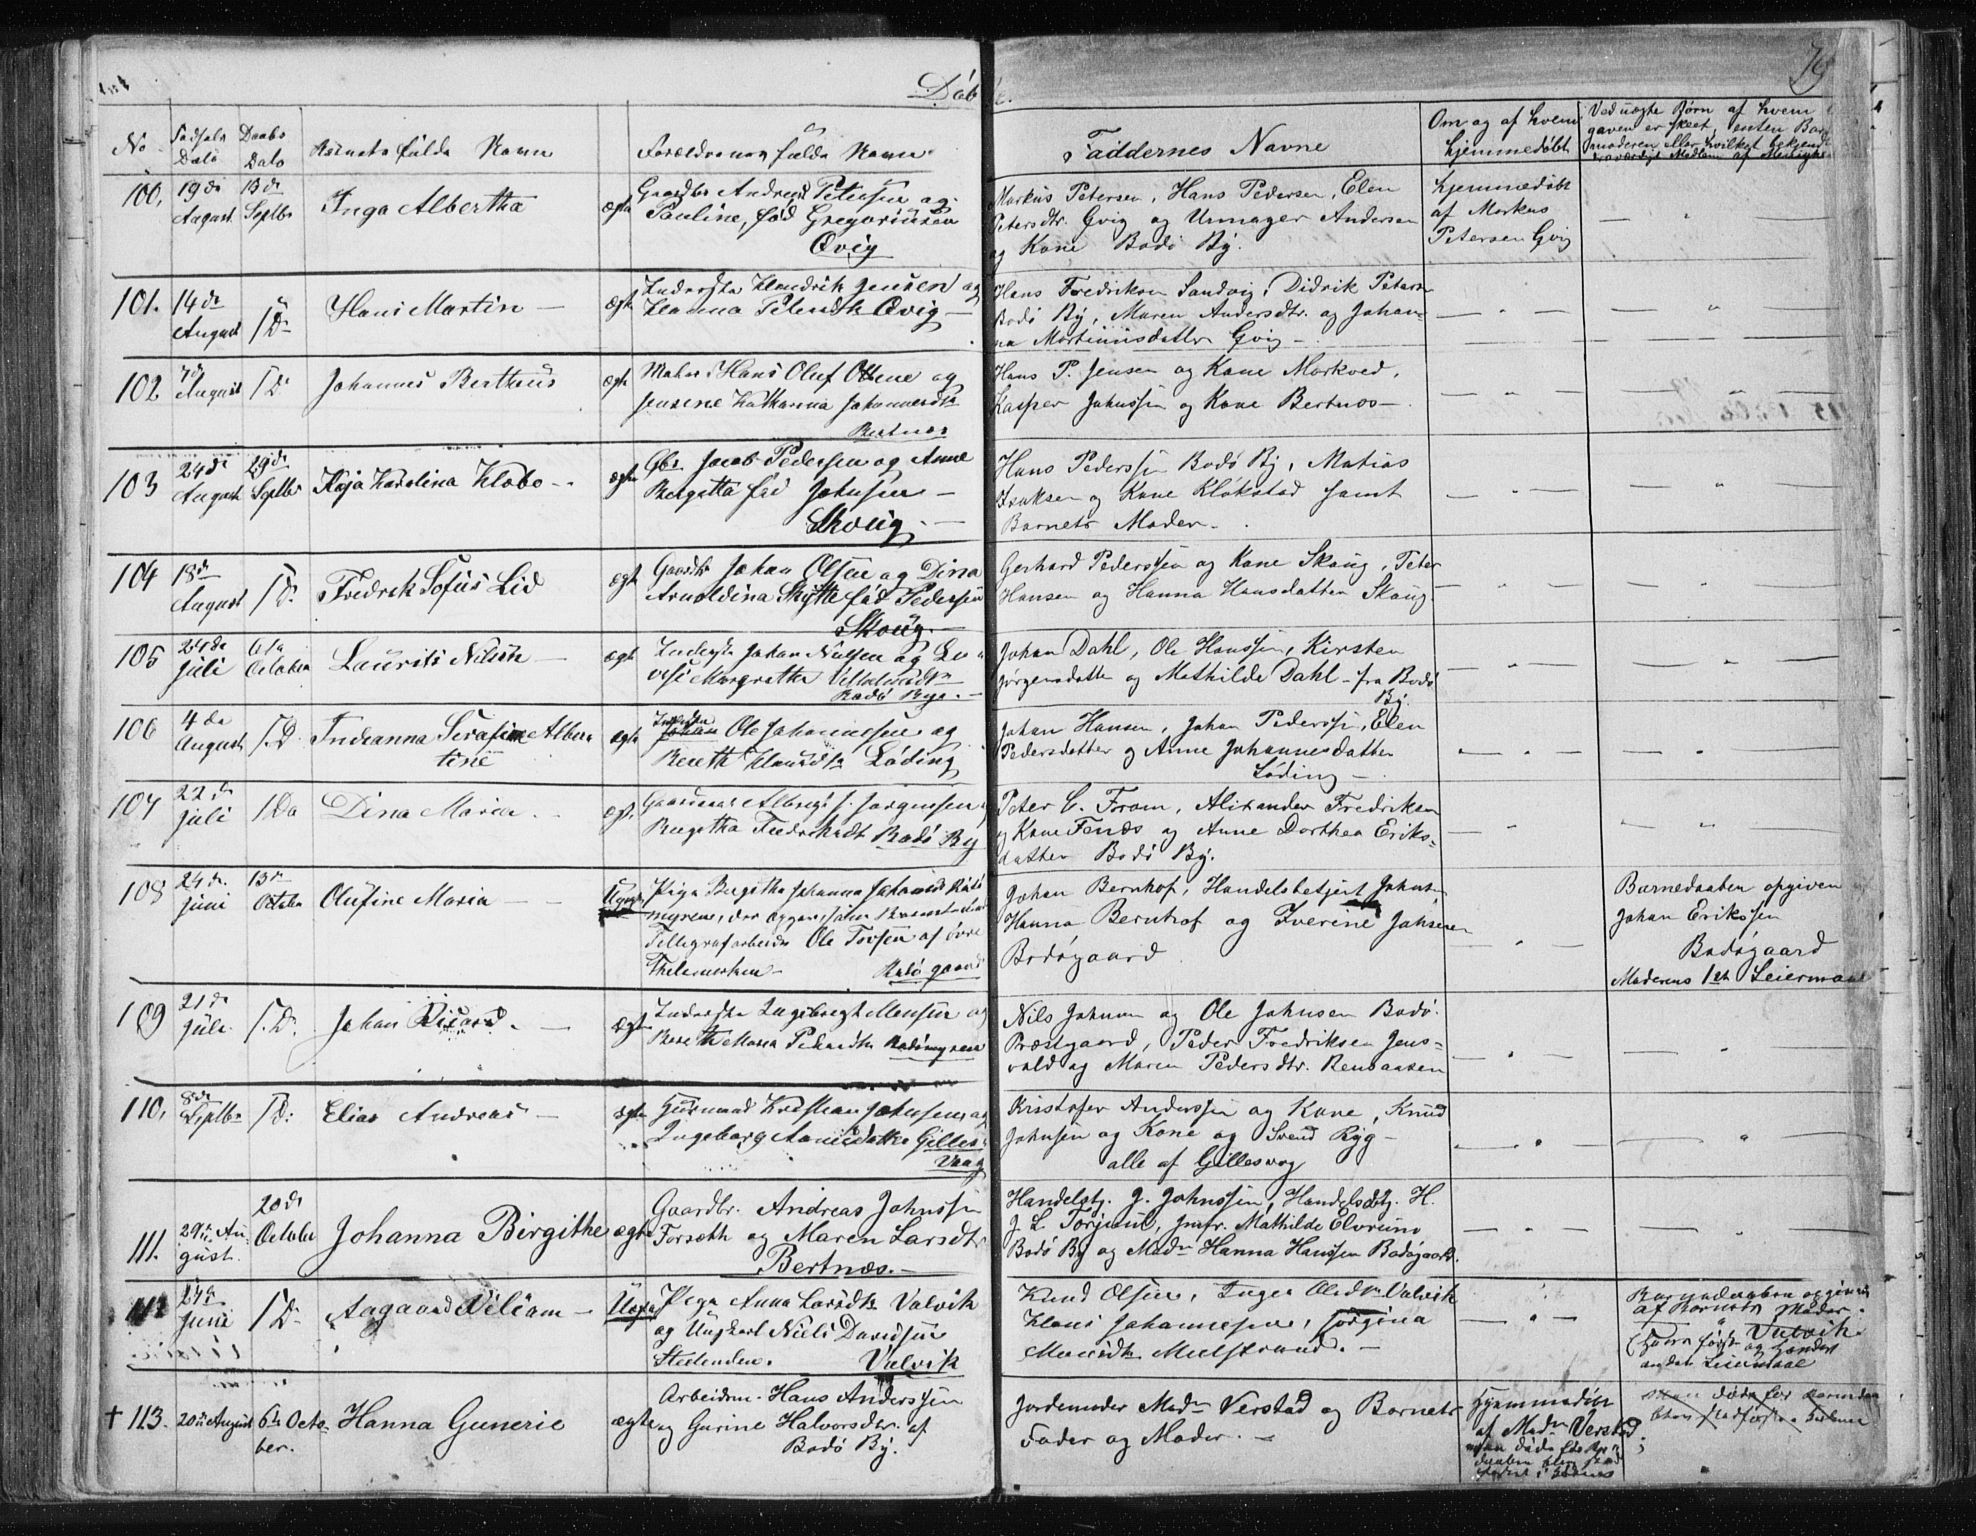 Døbte.
79
No
Fødsels Dato
Daabs Dato
Barnets fulde Navn
Forældrenes fulde Navne
Faddernes Navne
Om og af hvem hjemmedøbt
Ved uægte Børn af hvem
gaven er skeet, enten Bar
moderen eller hvilket bekjend
troværdigt Medlem af Menighe
100.
19de August
13de Septbr
Inga Albertha
ægte
Gaardbr Andreas Petersen og
Pauline, fød Gregoriusen
Qvig
Markus Petersen, Hans Pedersen, Elen
Petersdtr. Qvig og Urmager Andersen
og Kone Bodø By.
Hjemmedøbt
af Markus
Petersen Qvig
101.
14de August
S D
Hans Martin
ægte
Inderste Hendrik Jensen og
Hanna Petersdtr Qvig
Hans Fredriksen Sandvig, Didrik Petersen
Bodø By, Maren Andersdtr. og Johan-
na Martinusdatter Qvig
102
7de August
S D
Johannes Bertheus
ægte
Hans Oluf Ottesen og
Jensine Katharina Johannesdtr
Bertnes
Hans P. Jensen og Kone Mørkved,
Kasper Johnssen og Kone Bertnes
103
24de August
29de Septbr
Kaja Karolina Klæbo
ægte
Gbr. Jacob Pedersen og Anne
Bergitta fød Johnsen
Skoug.
Hans Pederssen Bodø By, Matias
Isaksen og Kone Kløkstad samt
Barnets Moder.
104
18de August
S D.
Fredrik Sofus Lid
ægte
Gaardbr Johan Olsen og Dina
Arnoldina Skytte fød Pedersen
Skoug.
Gerhard Pederssen og Kone Skoug, Peter
Hansen og Hanna Hansdatter Skoug.
105
24de Juli
6te October
Laurits Nilsen
ægte
Inderste Johan Nielsen og Lo-
vise Margrethe
Bodø Bye.
Johan Dahl, Ole Hanssen, Kirsten
Jørgensdatter og Mathilde Dahl fra Bodø
By.
106
4de August
S. D
Indianna Serafine Alber
tine
ægte
Inderste Ole Johannesen og
Bereth Løding
Johan Hansen, Johan Pederssen, Elen
Pedersdatter og Anne Johannesdatter
Løding
107
22de Juli
S D
Dina Maria
ægte
J. Jørgensen
Bergitha Fredriksdt Bodø By
Peter C. From, Alexander Fredriksen
og Kone Fenes og Anne Dorthea Eriks-
datter Bodø By.
108
24de Juni
13de October
Olufine Maria
Uægte
Pige Bergitha Johanna
myren, der opgiver som Barnefader
Telegrafarbeider Ole Torsen af øvre
Thelemarken
Bodøgaard
Johan Bernhof, Handelsbetjent Johnsen
Hanna Bernhof og Iverine Johnsen
Bodøgaard
Barnedaaben opgiven
Johan Eriksen
Bodøgaard
Moderens 1ste Leiermaal
109
21de Juli
S. D.
Johan Ricard
ægte
Inderste Ingebregt Monsen og
Bereth Maria Pedersdtr Bodømyren
Nils Johnsen og Ole Johnsen Bodø
Præstgaard, Peder Fredriksen Jens-
vold og Maren Pedersdtr. Rensaasen
110.
8de Septbr
S D:
Elias Andreas
ægte
Huusmand Kristian Johnsen og
Ingeborg Gilles-
vaag
Kristofer Anderssen og Kone, Knud
Johnsen og Kone og Svend Ryg
alle af Gillesvag
111.
29de August
20de October
Johanna Birgithe
ægte
Gaardbr. Andreas Johnssen
Forseth og Maren Larsdtr
Bertnæs.
Handelsbtj. J. Johnssen, Handelsbtj. H.
J. L. Torjusen, Jmfr. Mathilde Elvrum
Bodø By og Mad. Hanna Hanssen Bodøgaard.
112
24de Juni
S D
Aagaard Viliam
Uægte
Pige Anna Larsdtr Valvik
og Ungkarl Niels Davidsen
Valvik
Knud Olsen, Inger Olsdtr Valvik
Hans Johannesen, Jørgina
Barnedaaben opgiven
af Barnets Moder.
Valvik
andet Leiermaal
† 113.
20de August
6te Octo-
ber.
Hanna Gunerie
ægte
Arbeidsm. Hans Anderssen
og Gurine Halvorsdtr. af
Bodø By.
Jordemoder Mad. Verstad og Barnets
Fader og Moder.
Hjemmedøbt
af Mad. Verstad,